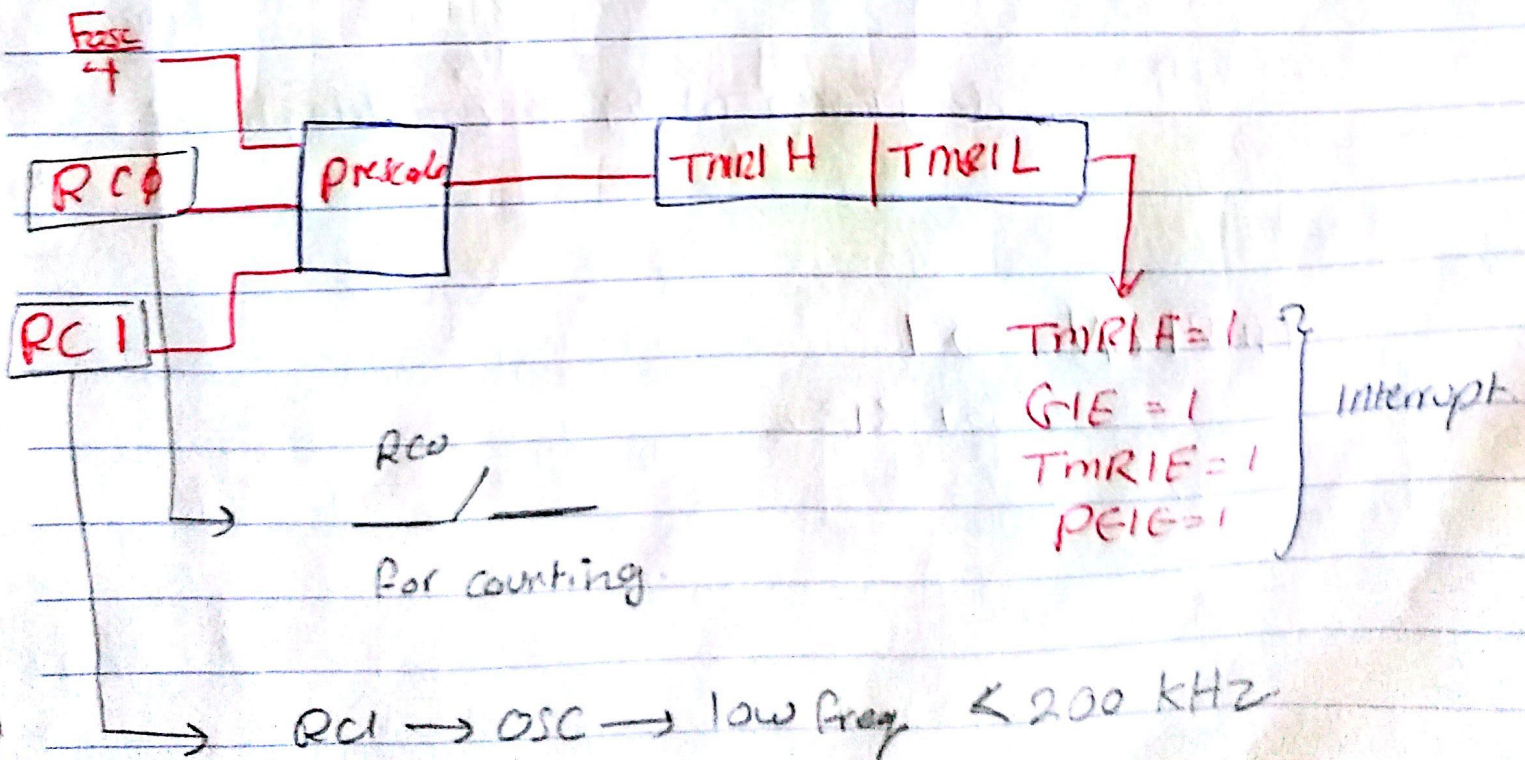 Fosc
4
RCφ
Prescaler
TMR1H | TMR1L
RC1
TMR1F=1
GIE = 1
TMR1E=1
PEIE=1
Interrupt.
RC0
for counting.
RC1 → OSC → low freq < 200 KHz